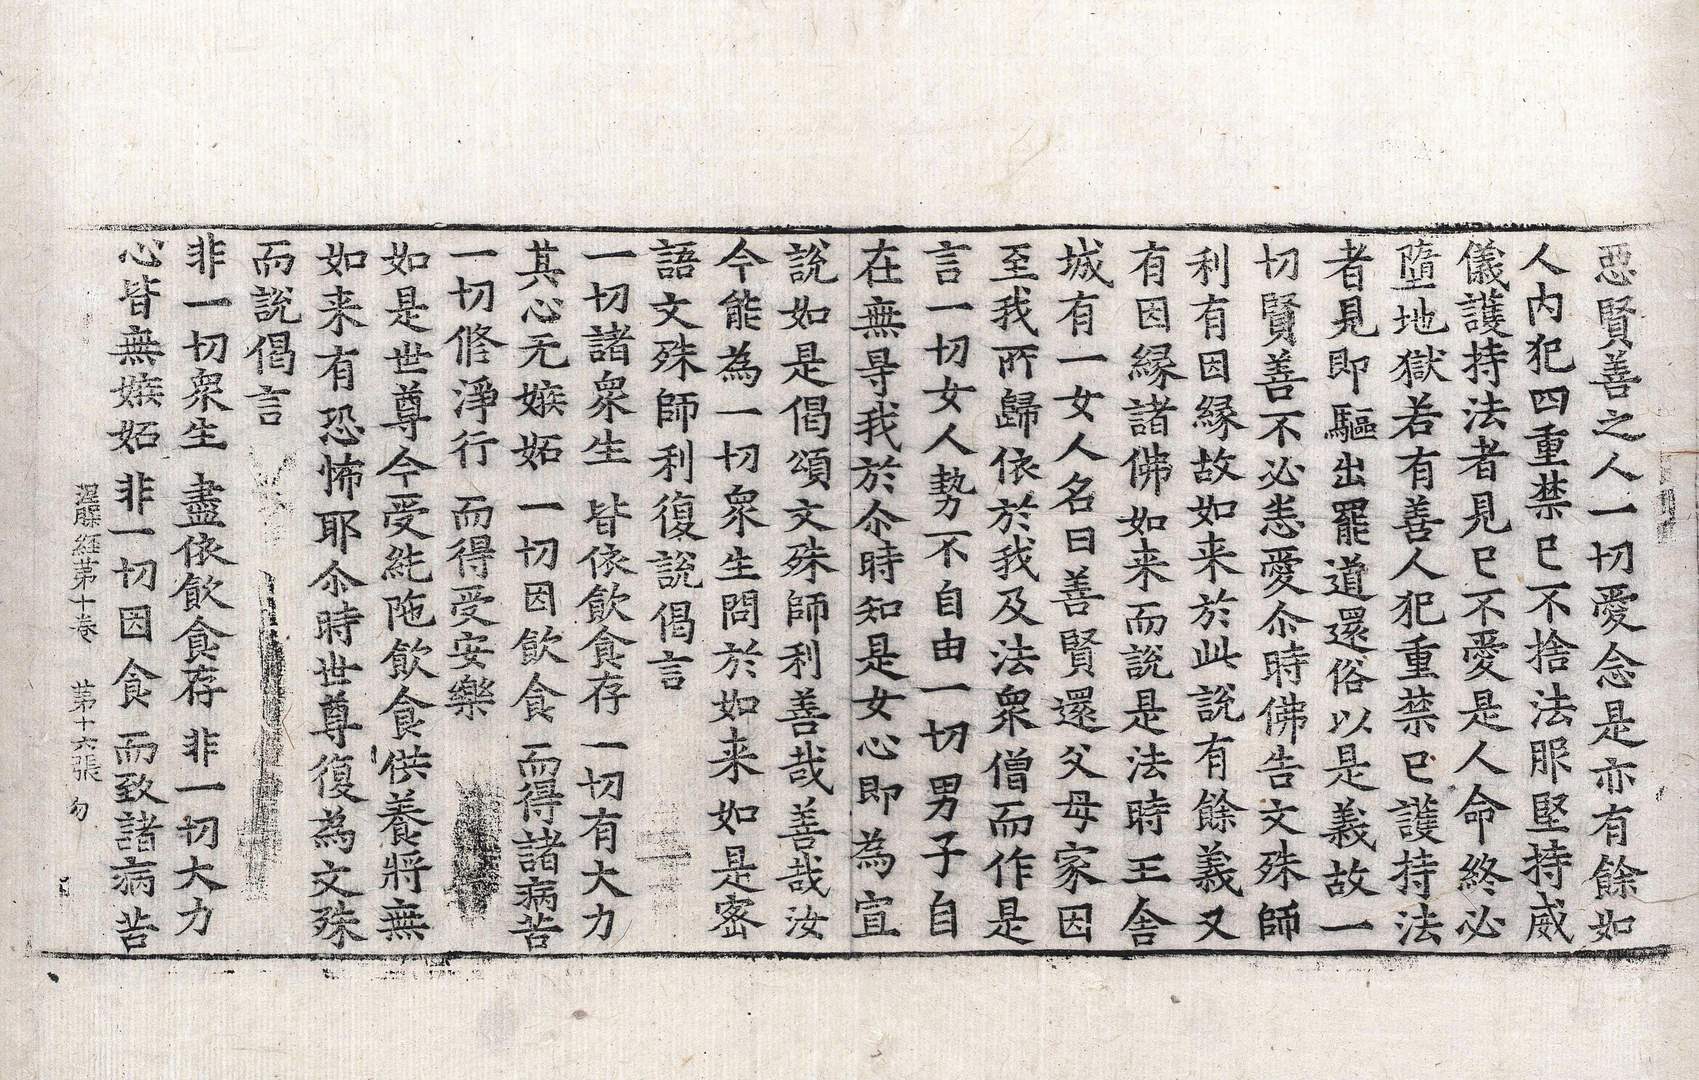 惡賢善之人一切愛念是亦有餘如
人內犯四重禁已不捨法服堅持威
儀護持法者見已不愛是人命終必
墮地獄若有善人犯重禁已護持法
者見即驅出罷道還俗以是義故一
切賢善不必悉愛尒時佛告文殊師
利有因縁故如来於此說有餘義又
有因縁諸佛如来而說是法時王舍
城有一女人名曰善賢還父母家因
至我所歸依於我及法衆僧而作是
言一切女人勢不自由一切男子自
在無㝵我於尒時知是女心即為宣
說如是偈頌文殊師利善哉善哉汝
今能為一切衆生問於如来如是密
語文殊師利復說偈言
一切諸衆生 皆依飲食存 一切有大力
其心无嫉妬 一切因飲食 而得諸病苦
一切修淨行 而得受安樂
如是世尊今受純陁飲食供養將無
如来有恐怖耶尒時世尊復為文殊
而說偈言
非一切衆生 盡依飲食存 非一切大力
心皆無嫉妬 非一切因食 而致諸病苦
涅槃経苐十卷 苐十六張 勿